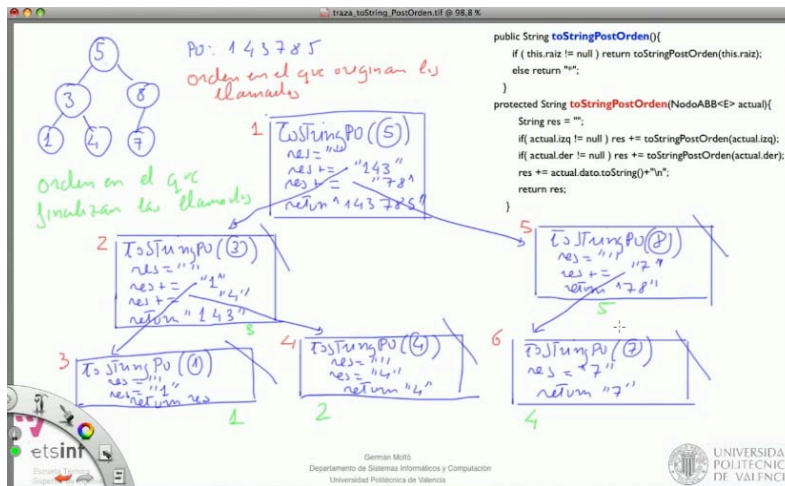 traza_toString_PostOrden.tif @ 98,8 %
5
3
8
1
4
7
PO: 1 4 3 7 8 5
orden en el que originan las
llamadas
orden en el que
finalizan las llamadas
public String toStringPostOrden(){
if ( this.raiz != null ) return toStringPostOrden(this.raiz);
else return "*";
}
protected String toStringPostOrden(NodoABB<E> actual){
String res = "";
if( actual.izq != null ) res += toStringPostOrden(actual.izq);
if( actual.der != null ) res += toStringPostOrden(actual.der);
res += actual.dato.toString()+"\n";
return res;
}
1
toStringPO(5)
res=""
res += "143"
res += "78"
return "143785"
2
toStringPO(3)
res=""
res += "1"
res += "4"
return "143"
3
5
toStringPO(8)
res=""
res += "7"
return "78"
5
3
toStringPO(1)
res=""
res="1"
return res
1
4
toStringPO(4)
res=""
res="4"
return "4"
2
6
toStringPO(7)
res="7"
return "7"
4
etsinf
Escuela Técnica
Germán Moltó
Departamento de Sistemas Informáticos y Computación
Universidad Politécnica de Valencia
UNIVERSIDA
POLITECNIC
DE VALENCI